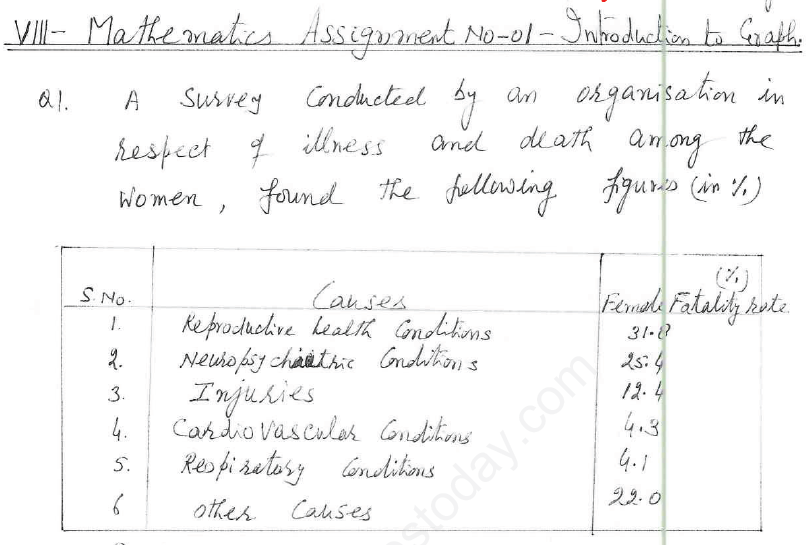 VIII- Mathematics Assignment No-01 - Introduction to Graph.
Q1. A survey Conducted by an organisation in
respect of illness and death among the
women, found the following figures (in %)
S.No. Causes Female Fatality rate (%)
1. Reproductive health Conditions 31.8
2. Neuropsychiatric Conditions 25.4
3. Injuries 12.4
4. Cardiovascular Conditions 4.3
5. Respiratory Conditions 4.1
6 other Causes 22.0
stoday.com